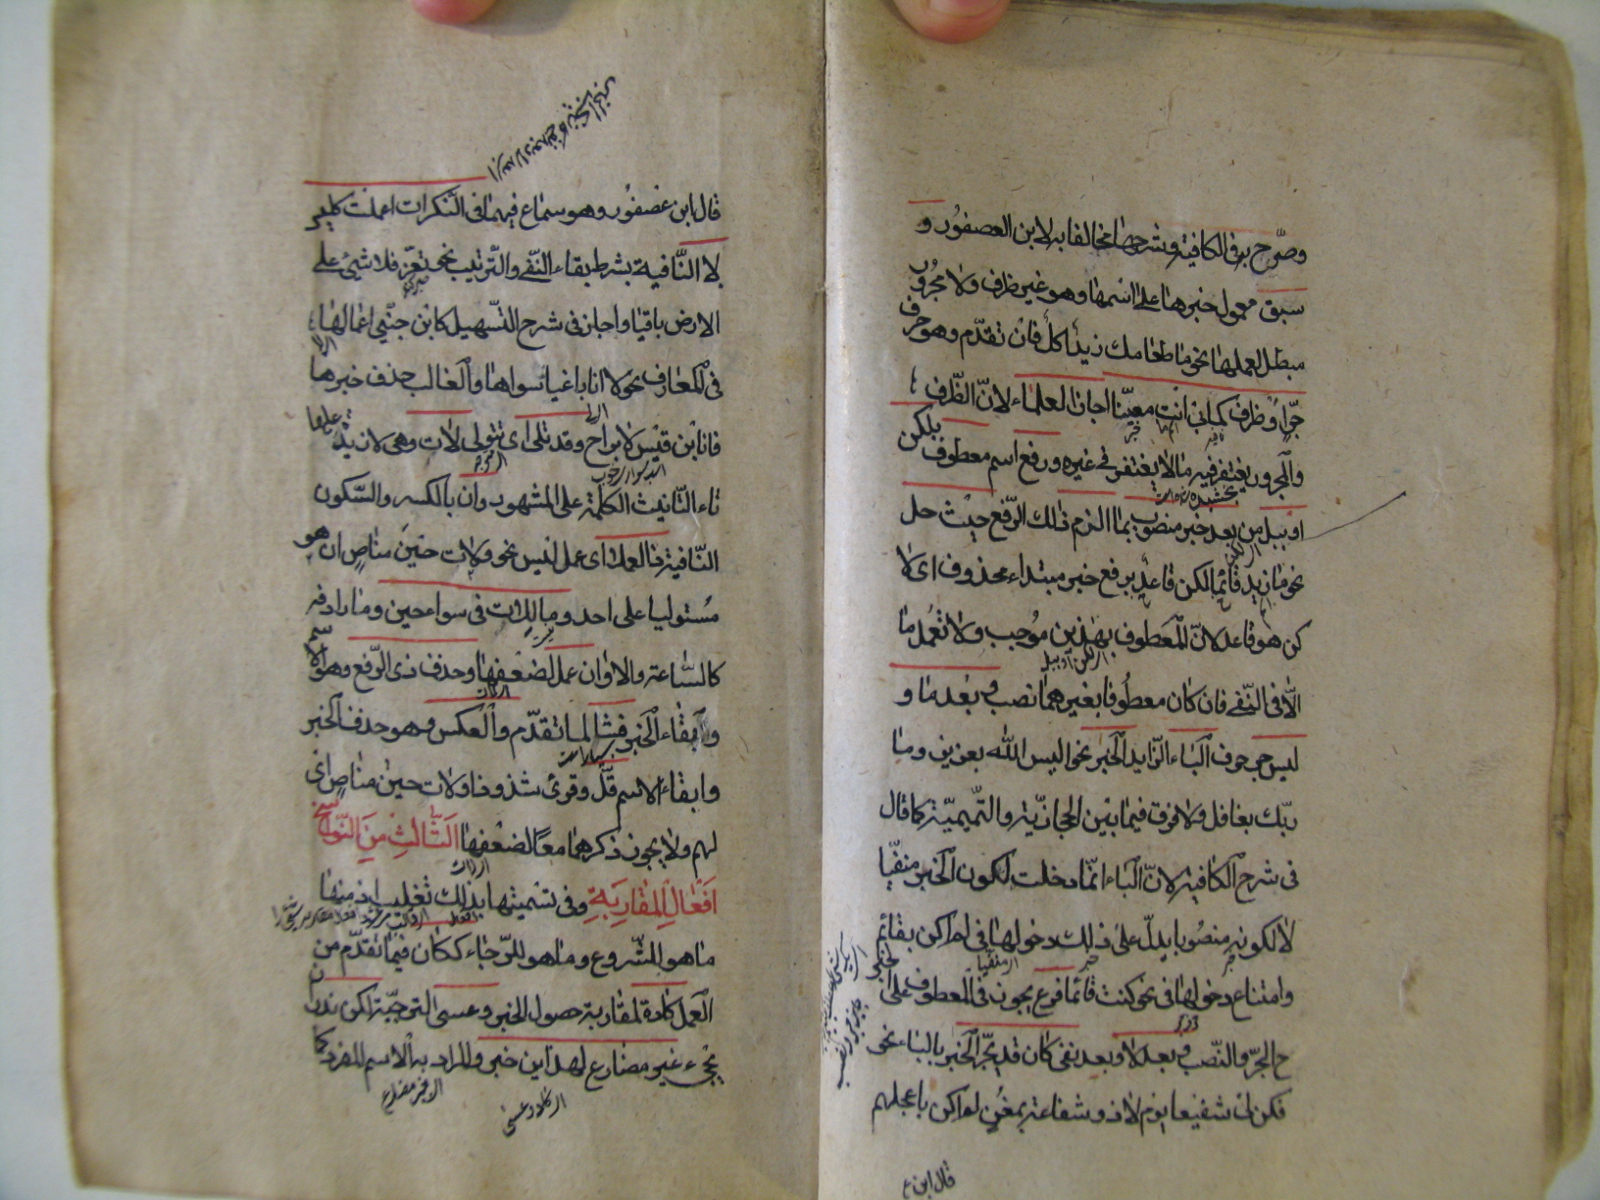 وصرّح به فى الكافية وشرحها مخالفا به لابن العصفور و
سبق معمول خبرها على اسمها وهو غير ظرف ولا مجرور
مبطل لعملها نحو ما طعامك زيد اكل فان تقدّم وهو حرف
جرّ او ظرف كما بى انت معنيّا اجاز العلماء لانّ الظّرف
والمجرور يغتفر فيه ما لا يغتفر فى غيره ورفع اسم معطوف بلكن
او ببل من بعد خبر منصوب بما الزم ذلك الرّفع حيث حل
نحو ما زيد قائما لكن قاعد برفع خبر مبتداء محذوف اى لا
كن هو قاعد لانّ المعطوف بهذين موجب ولا تعمل ما
الّا فى النّفى فان كان معطوفا بغيرهما نصب وبعد ما و
ليس جر حرف الباء الزّايد الخبر نحو اليس الله بعزيز وما
ربّك بغافل ولا فرق فيما بين الحجازيّة والتّميميّة كما قال
فى شرح الكافية لانّ الباء انّما دخلت لكون الخبر منفيّا
لا لكونه منصوبا يدلّ على ذلك دخولها فى لم اكن بقائم
وامتناع دخولها فى نحو كنت قائما فرع يجوز فى المعطوف على الخبر
ح الجرّ والنّصب وبعد لا وبعد نفى كان قد يجرّ الخبر بالباء نحو
فكن لى شفيعا يوم لا ذو شفاعة بمغن لم اكن باعجلهم
قال ابن ع
قال ابن عصفور وهو سماع فيهما فى النّكرات اعملت كليس
لا النّافية بشرط بقاء النّفى والتّرتيب نحو تعزّ فلا شئ على
الارض باقيا واجاز فى شرح التّسهيل كابن جنّى اعمالها
فى المعارف نحو لا انا باغيا سواها والغالب حذف خبرها
فانا ابن قيس لا براح وقد تلى اى تتولى لات وهى لا زيد عليها
تاء التّانيث الكلمة على المشهور وان بالكسر والسّكون
النّافية ذا العملا اى عمل ليس نحو ولات حين مناص ان هو
مستوليا على احد وما للات فى سوا حين وما رادفه
كالسّاعة والاوان عمل لضعفها وحذف ذى الرّفع وهو الاسم
وابقاء الخبر فشا لما تقدّم والعكس وهو حذف الخبر
وابقاء الاسم قلّ وقرئ شذوذا ولات حين مناص اى
لهم ولا يجوز ذكرهما معا لضعفها الثّالث من النّواسخ
افعال المقاربة وفى تسميتها بذلك تغليب اذ منها
ما هو للشّروع وما هو للرّجاء ككان فيما تقدّم من
العمل كاد لمقاربة حصول الخبر وعسى لترجيّه لكن ندر ان
يجئ غير مضارع لهذين خبر والمراد به الاسم المفرد كما